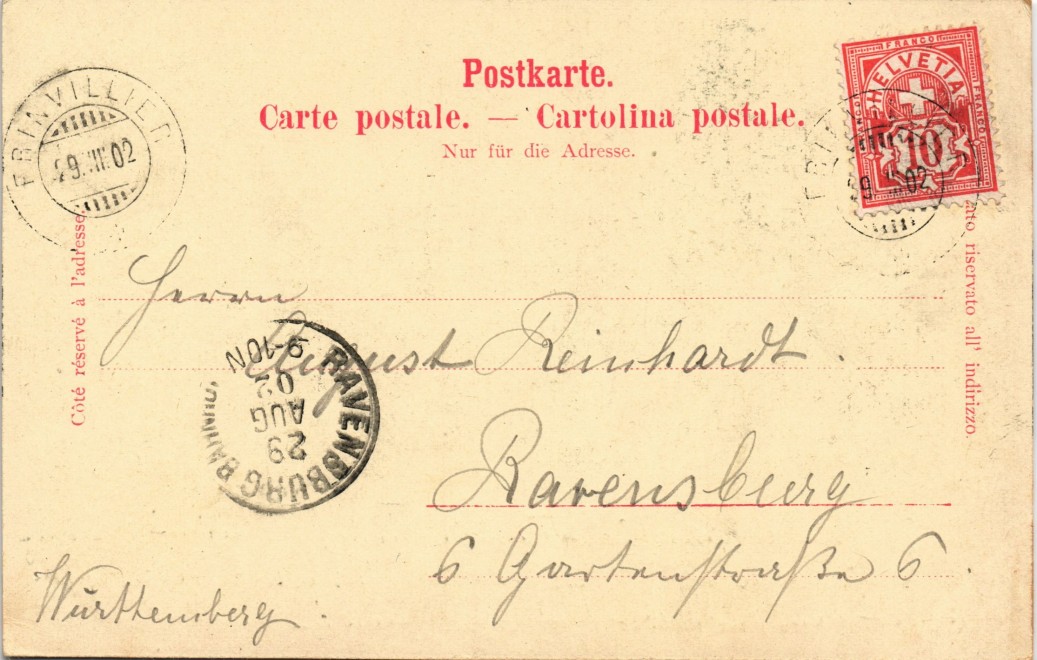 Postkarte.
Carte postale. — Cartolina postale.
Nur für die Adresse.
FRANCO
HELVETIA
FRANCO
FRANCO
10
FRINVILLIER
29.VIII.02
9 02
Côté réservé à l'adresse
ato riservato all' indirizzo.
Herrn
August Reinhardt.
Ravensburg
6 Gartenstraße 6.
Württemberg.
RAVENSBURG BAHNHOF
29
AUG
02
9-10N